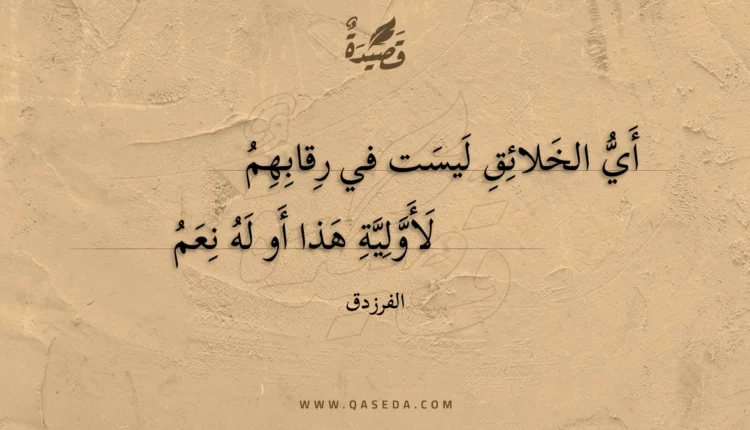 قَصِيدَةٌ
أَيُّ الخَلائِقِ لَيسَت في رِقابِهِمُ
لَأَوَّلِيَّةِ هَذا أَو لَهُ نِعَمُ
الفرزدق
WWW.QASEDA.COM